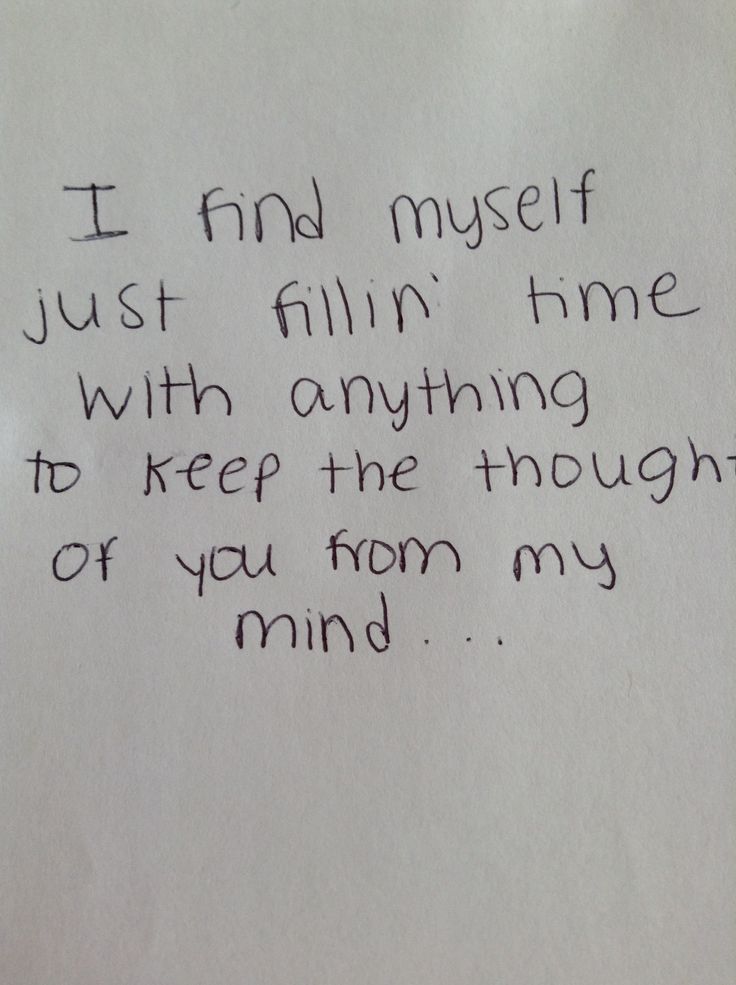 I find myself
just fillin' time
with anything
to keep the thought
of you from my
mind...